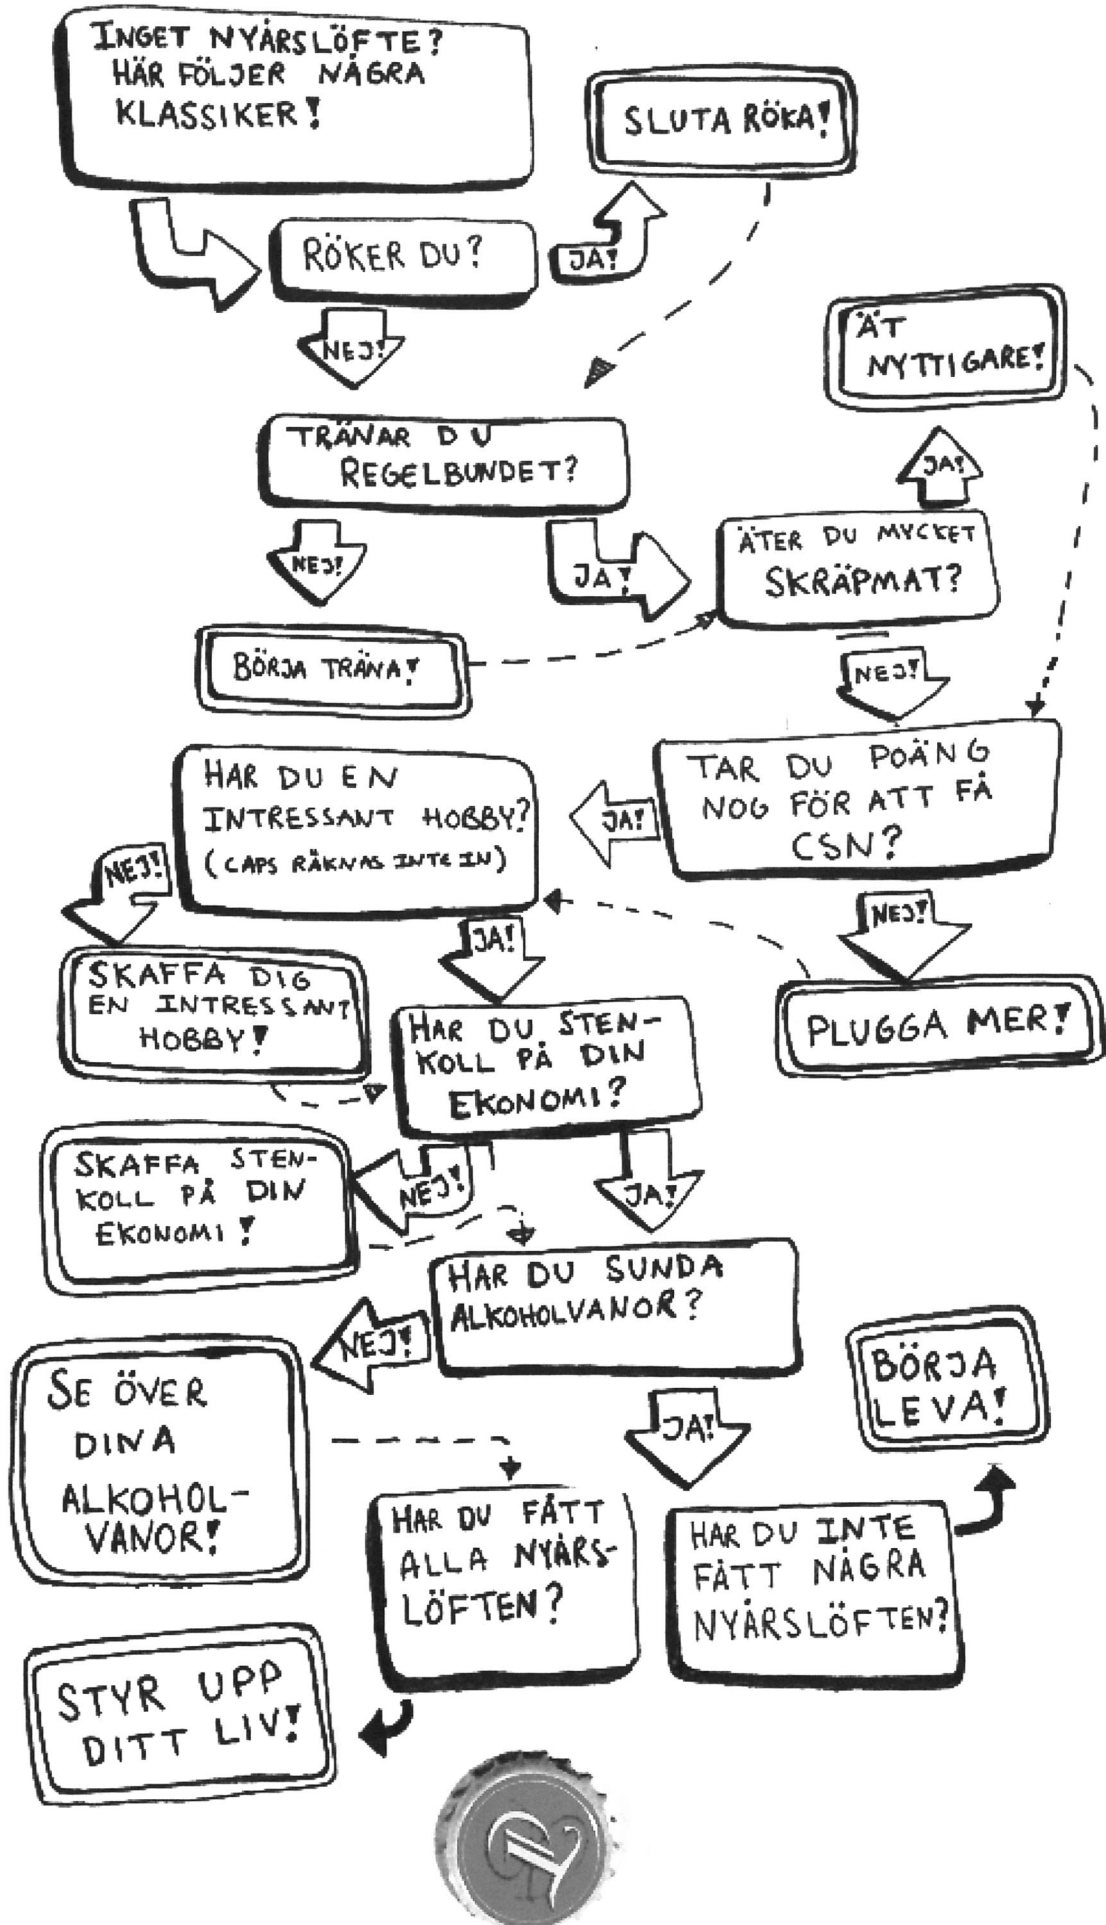 INGET NYÅRSLÖFTE?
HÄR FÖLJER NÅGRA
KLASSIKER!
SLUTA RÖKA!
RÖKER DU?
JA!
NEJ!
ÄT
NYTTIGARE!
TRÄNAR DU
REGELBUNDET?
JA!
NEJ!
JA!
ÄTER DU MYCKET
SKRÄPMAT?
BÖRJA TRÄNA!
NEJ!
TAR DU POÄNG
NOG FÖR ATT FÅ
CSN?
JA!
HAR DU EN
INTRESSANT HOBBY?
(CAPS RÄKNAS INTE IN)
NEJ!
NEJ!
JA!
SKAFFA DIG
EN INTRESSANT
HOBBY!
PLUGGA MER!
HAR DU STEN-
KOLL PÅ DIN
EKONOMI?
SKAFFA STEN-
KOLL PÅ DIN
EKONOMI!
NEJ!
JA!
HAR DU SUNDA
ALKOHOLVANOR?
NEJ!
SE ÖVER
DINA
ALKOHOL-
VANOR!
JA!
BÖRJA
LEVA!
HAR DU FÅTT
ALLA NYÅRS-
LÖFTEN?
HAR DU INTE
FÅTT NÅGRA
NYÅRSLÖFTEN?
STYR UPP
DITT LIV!